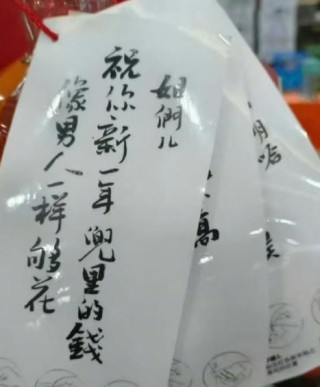 姐們儿
祝你新一年兜里的錢
像男人一样够花
萬
明